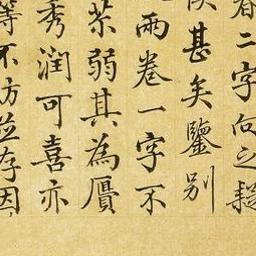 二字向之
甚矣鑒別
兩卷一字不
弱其為贗
秀潤可喜亦
等不妨並存因